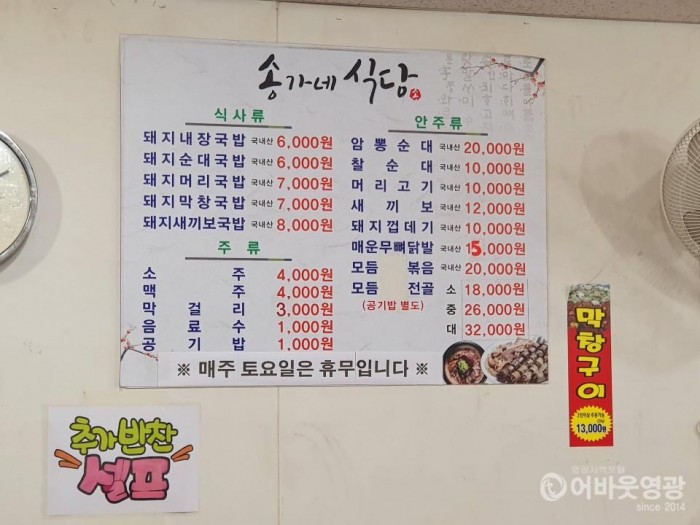 송가네 식당
식사류
돼지내장국밥 국내산 6,000원
돼지순대국밥 국내산 6,000원
돼지머리국밥 국내산 7,000원
돼지막창국밥 국내산 7,000원
돼지새끼보국밥 국내산 8,000원
주류
소주 4,000원
맥주 4,000원
막걸리 3,000원
음료수 1,000원
공기밥 1,000원
안주류
암뽕순대 국내산 20,000원
찰순대 국내산 10,000원
머리고기 국내산 10,000원
새끼보 국내산 12,000원
돼지껍데기 국내산 10,000원
매운무뼈닭발 국내산 15,000원
모듬 볶음 국내산 20,000원
모듬 전골 소 18,000원
(공기밥 별도) 중 26,000원
대 32,000원
※ 매주 토요일은 휴무입니다 ※
추가반찬
셀프
막창구이
13,000원
어바웃영광
since 2014